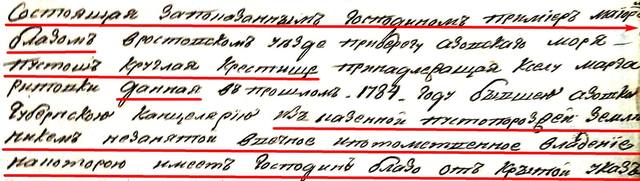 Состоящая запоказаннымъ господиномъ примiеръ маiор
блазомъ вростовскомъ уезде приберегу азовскаго моря
пустошъ круглая крестище принадлежащая кселу марга
ритовки данная въ прошломъ 1781 году бывшею азовскою
губернскою канцеляриею изъ казенной пустопорозжей земли
никемъ незанятой ввечное ипотомственное владение
накоторою имеетъ господинъ блазо отъ крытой указъ